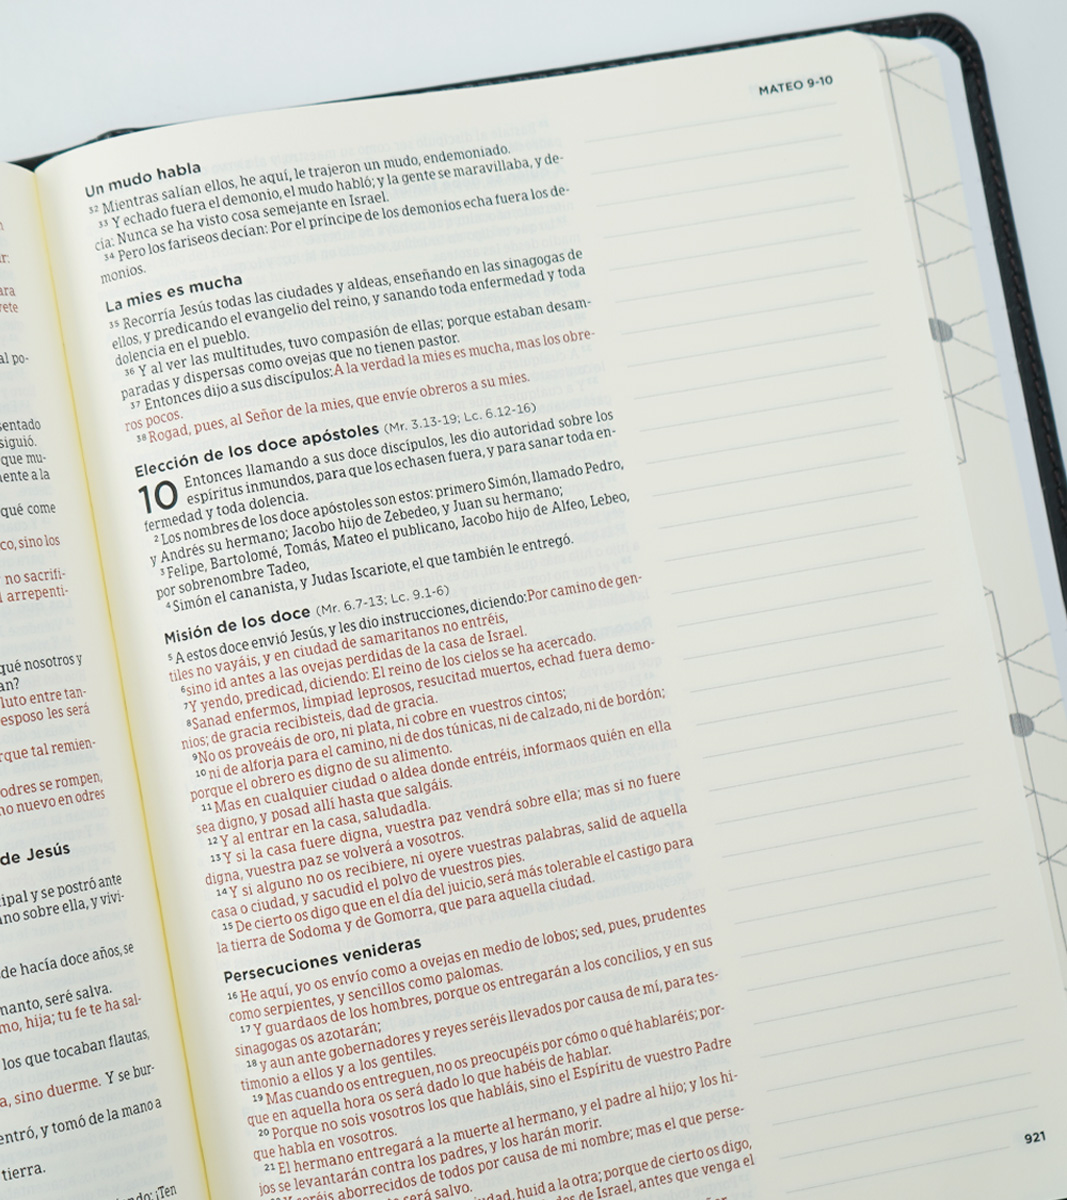 r:
ara
rete
al po-
sentado
siguió.
que mu-
mente a la
qué come
co, sino los
no sacrifi-
arrepenti-
qué nosotros y
an?
luto entre tan-
esposo les será
rque tal remien-
odres se rompen,
no nuevo en odres
de Jesús
cipal y se postró ante
ano sobre ella, y vivi-
de hacía doce años, se
manto, seré salva.
mo, hija; tu fe te ha sal-
los que tocaban flautas,
a, sino duerme. Y se bur-
entró, y tomó de la mano a
tierra.
ndo: ¡Ten
MATEO 9-10
Un mudo habla
32 Mientras salían ellos, he aquí, le trajeron un mudo, endemoniado.
33 Y echado fuera el demonio, el mudo habló; y la gente se maravillaba, y de-
cía: Nunca se ha visto cosa semejante en Israel.
34 Pero los fariseos decían: Por el príncipe de los demonios echa fuera los de-
monios.
La mies es mucha
35 Recorría Jesús todas las ciudades y aldeas, enseñando en las sinagogas de
ellos, y predicando el evangelio del reino, y sanando toda enfermedad y toda
dolencia en el pueblo.
36 Y al ver las multitudes, tuvo compasión de ellas; porque estaban desam-
paradas y dispersas como ovejas que no tienen pastor.
37 Entonces dijo a sus discípulos: A la verdad la mies es mucha, mas los obre-
ros pocos.
38 Rogad, pues, al Señor de la mies, que envíe obreros a su mies.
Elección de los doce apóstoles (Mr. 3.13-19; Lc. 6.12-16)
10 Entonces llamando a sus doce discípulos, les dio autoridad sobre los
espíritus inmundos, para que los echasen fuera, y para sanar toda en-
fermedad y toda dolencia.
2 Los nombres de los doce apóstoles son estos: primero Simón, llamado Pedro,
y Andrés su hermano; Jacobo hijo de Zebedeo, y Juan su hermano;
3 Felipe, Bartolomé, Tomás, Mateo el publicano, Jacobo hijo de Alfeo, Lebeo,
por sobrenombre Tadeo,
4 Simón el cananista, y Judas Iscariote, el que también le entregó.
Misión de los doce (Mr. 6.7-13; Lc. 9.1-6)
5 A estos doce envió Jesús, y les dio instrucciones, diciendo: Por camino de gen-
tiles no vayáis, y en ciudad de samaritanos no entréis,
6 sino id antes a las ovejas perdidas de la casa de Israel.
7 Y yendo, predicad, diciendo: El reino de los cielos se ha acercado.
8 Sanad enfermos, limpiad leprosos, resucitad muertos, echad fuera demo-
nios; de gracia recibisteis, dad de gracia.
9 No os proveáis de oro, ni plata, ni cobre en vuestros cintos;
10 ni de alforja para el camino, ni de dos túnicas, ni de calzado, ni de bordón;
porque el obrero es digno de su alimento.
11 Mas en cualquier ciudad o aldea donde entréis, informaos quién en ella
sea digno, y posad allí hasta que salgáis.
12 Y al entrar en la casa, saludadla.
13 Y si la casa fuere digna, vuestra paz vendrá sobre ella; mas si no fuere
digna, vuestra paz se volverá a vosotros.
14 Y si alguno no os recibiere, ni oyere vuestras palabras, salid de aquella
casa o ciudad, y sacudid el polvo de vuestros pies.
15 De cierto os digo que en el día del juicio, será más tolerable el castigo para
la tierra de Sodoma y de Gomorra, que para aquella ciudad.
Persecuciones venideras
16 He aquí, yo os envío como a ovejas en medio de lobos; sed, pues, prudentes
como serpientes, y sencillos como palomas.
17 Y guardaos de los hombres, porque os entregarán a los concilios, y en sus
sinagogas os azotarán;
18 y aun ante gobernadores y reyes seréis llevados por causa de mí, para tes-
timonio a ellos y a los gentiles.
19 Mas cuando os entreguen, no os preocupéis por cómo o qué hablaréis; por-
que en aquella hora os será dado lo que habéis de hablar.
20 Porque no sois vosotros los que habláis, sino el Espíritu de vuestro Padre
que habla en vosotros.
21 El hermano entregará a la muerte al hermano, y el padre al hijo; y los hi-
jos se levantarán contra los padres, y los harán morir.
seréis aborrecidos de todos por causa de mi nombre; mas el que perse-
será salvo.
udad, huid a la otra; porque de cierto os digo,
de Israel, antes que venga el
921